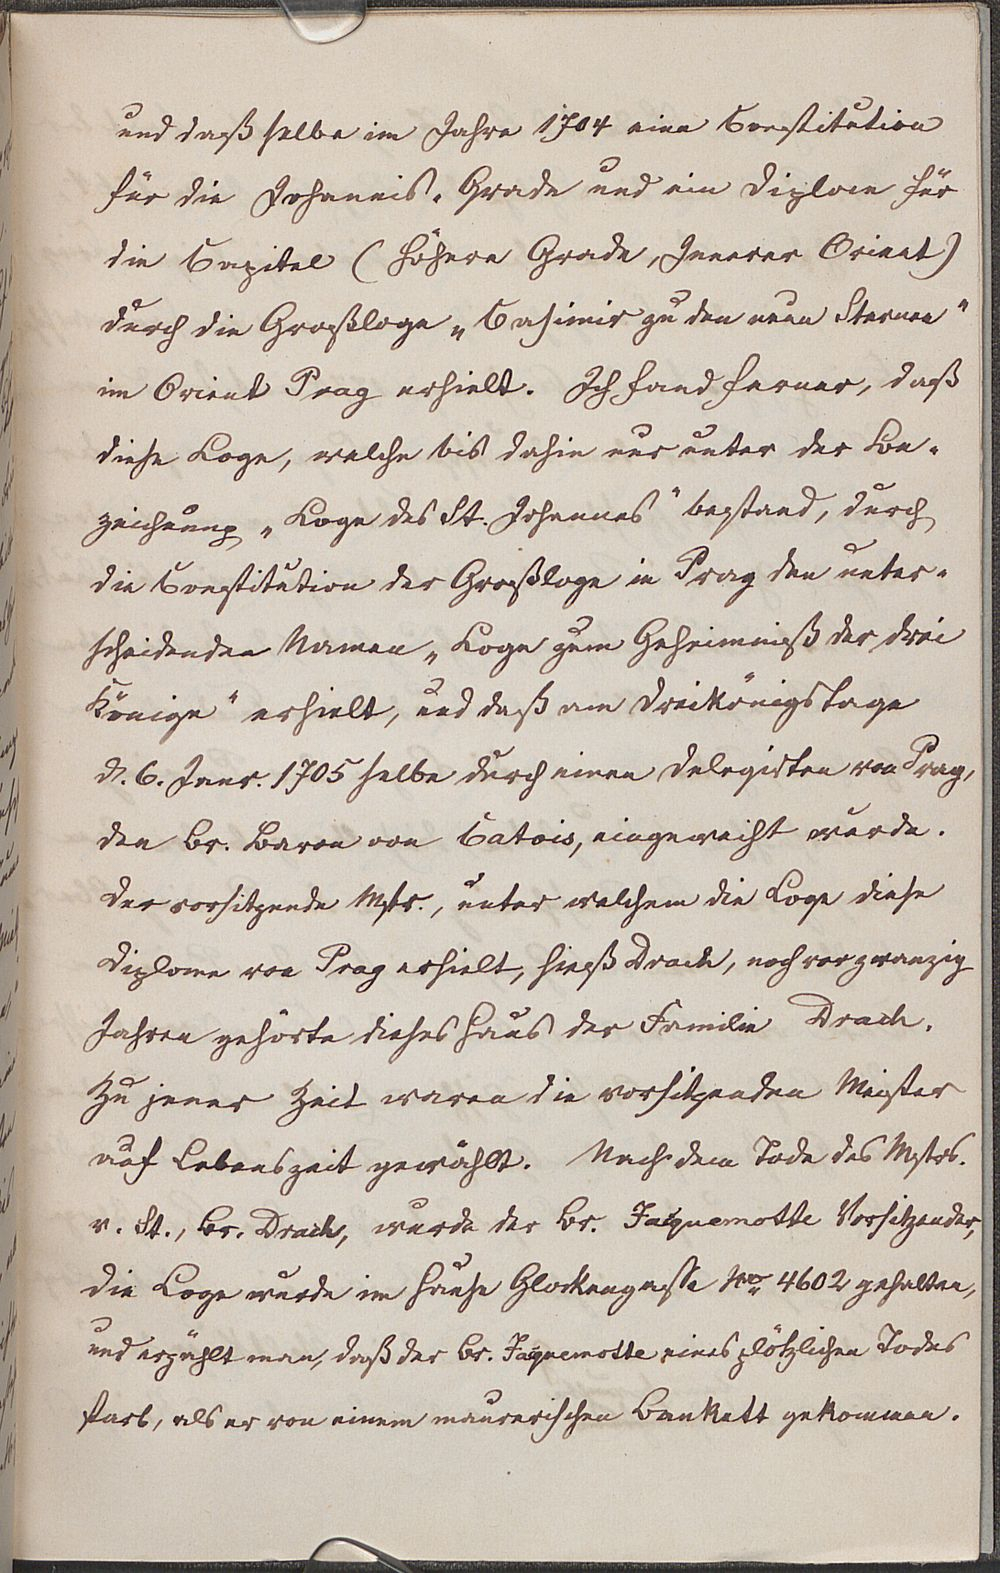 und daß selbe im Jahre 1704 eine Constitution
für die Johannis-Grade und ein Diplom für
die Capitel (Höhere Grade, Innerer Orient)
durch die Großloge „Casimir zu den neun Sternen"
im Orient Prag erhielt. Ich fand ferner, daß
diese Loge, welche bis dahin nur unter der Be-
zeichnung „Loge des St. Johannes" bestand, durch
die Constitution der Großloge in Prag den unter-
scheidenden Namen „Loge zum Geheimniß der drei
Könige" erhielt, und daß am Dreikönigstage
d. 6. Janr. 1705 selbe durch einen Delegirten von Prag,
den Br. Baron von Catois, eingeweiht wurde.
Der vorsitzende Mstr., unter welchem die Loge diese
Diplome von Prag erhielt, hieß Drach, noch vor zwanzig
Jahren gehörte dieses Haus der Familie Drach.
Zu jener Zeit waren die vorsitzenden Meister
auf Lebenszeit gewählt. Nach dem Tode des Mstrs.
v. St., Br. Drach, wurde der Br. Jacquemotte Vorsitzender,
die Loge wurde im Hause Glockengasse Nro 4602 gehalten,
und erzählt man, daß der Br. Jacquemotte eines plötzlichen Todes
starb, als er von einem maurerischen Bankett gekommen.